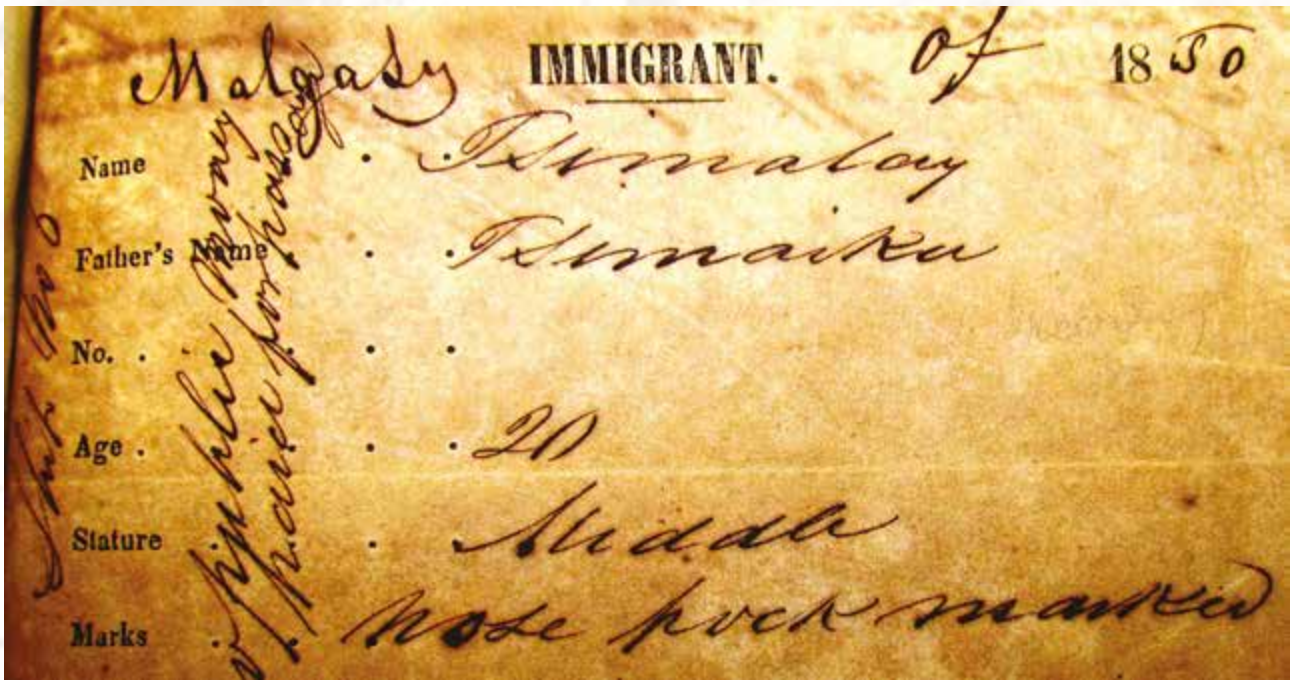 Malgasy IMMIGRANT. of 1850
Name . . Tsimalay
Father's Name . . Tsimaika
No. . . .
Age . . . 20
Stature . . . Middle
Marks . . Nose pock marked
public Money
paid for passage